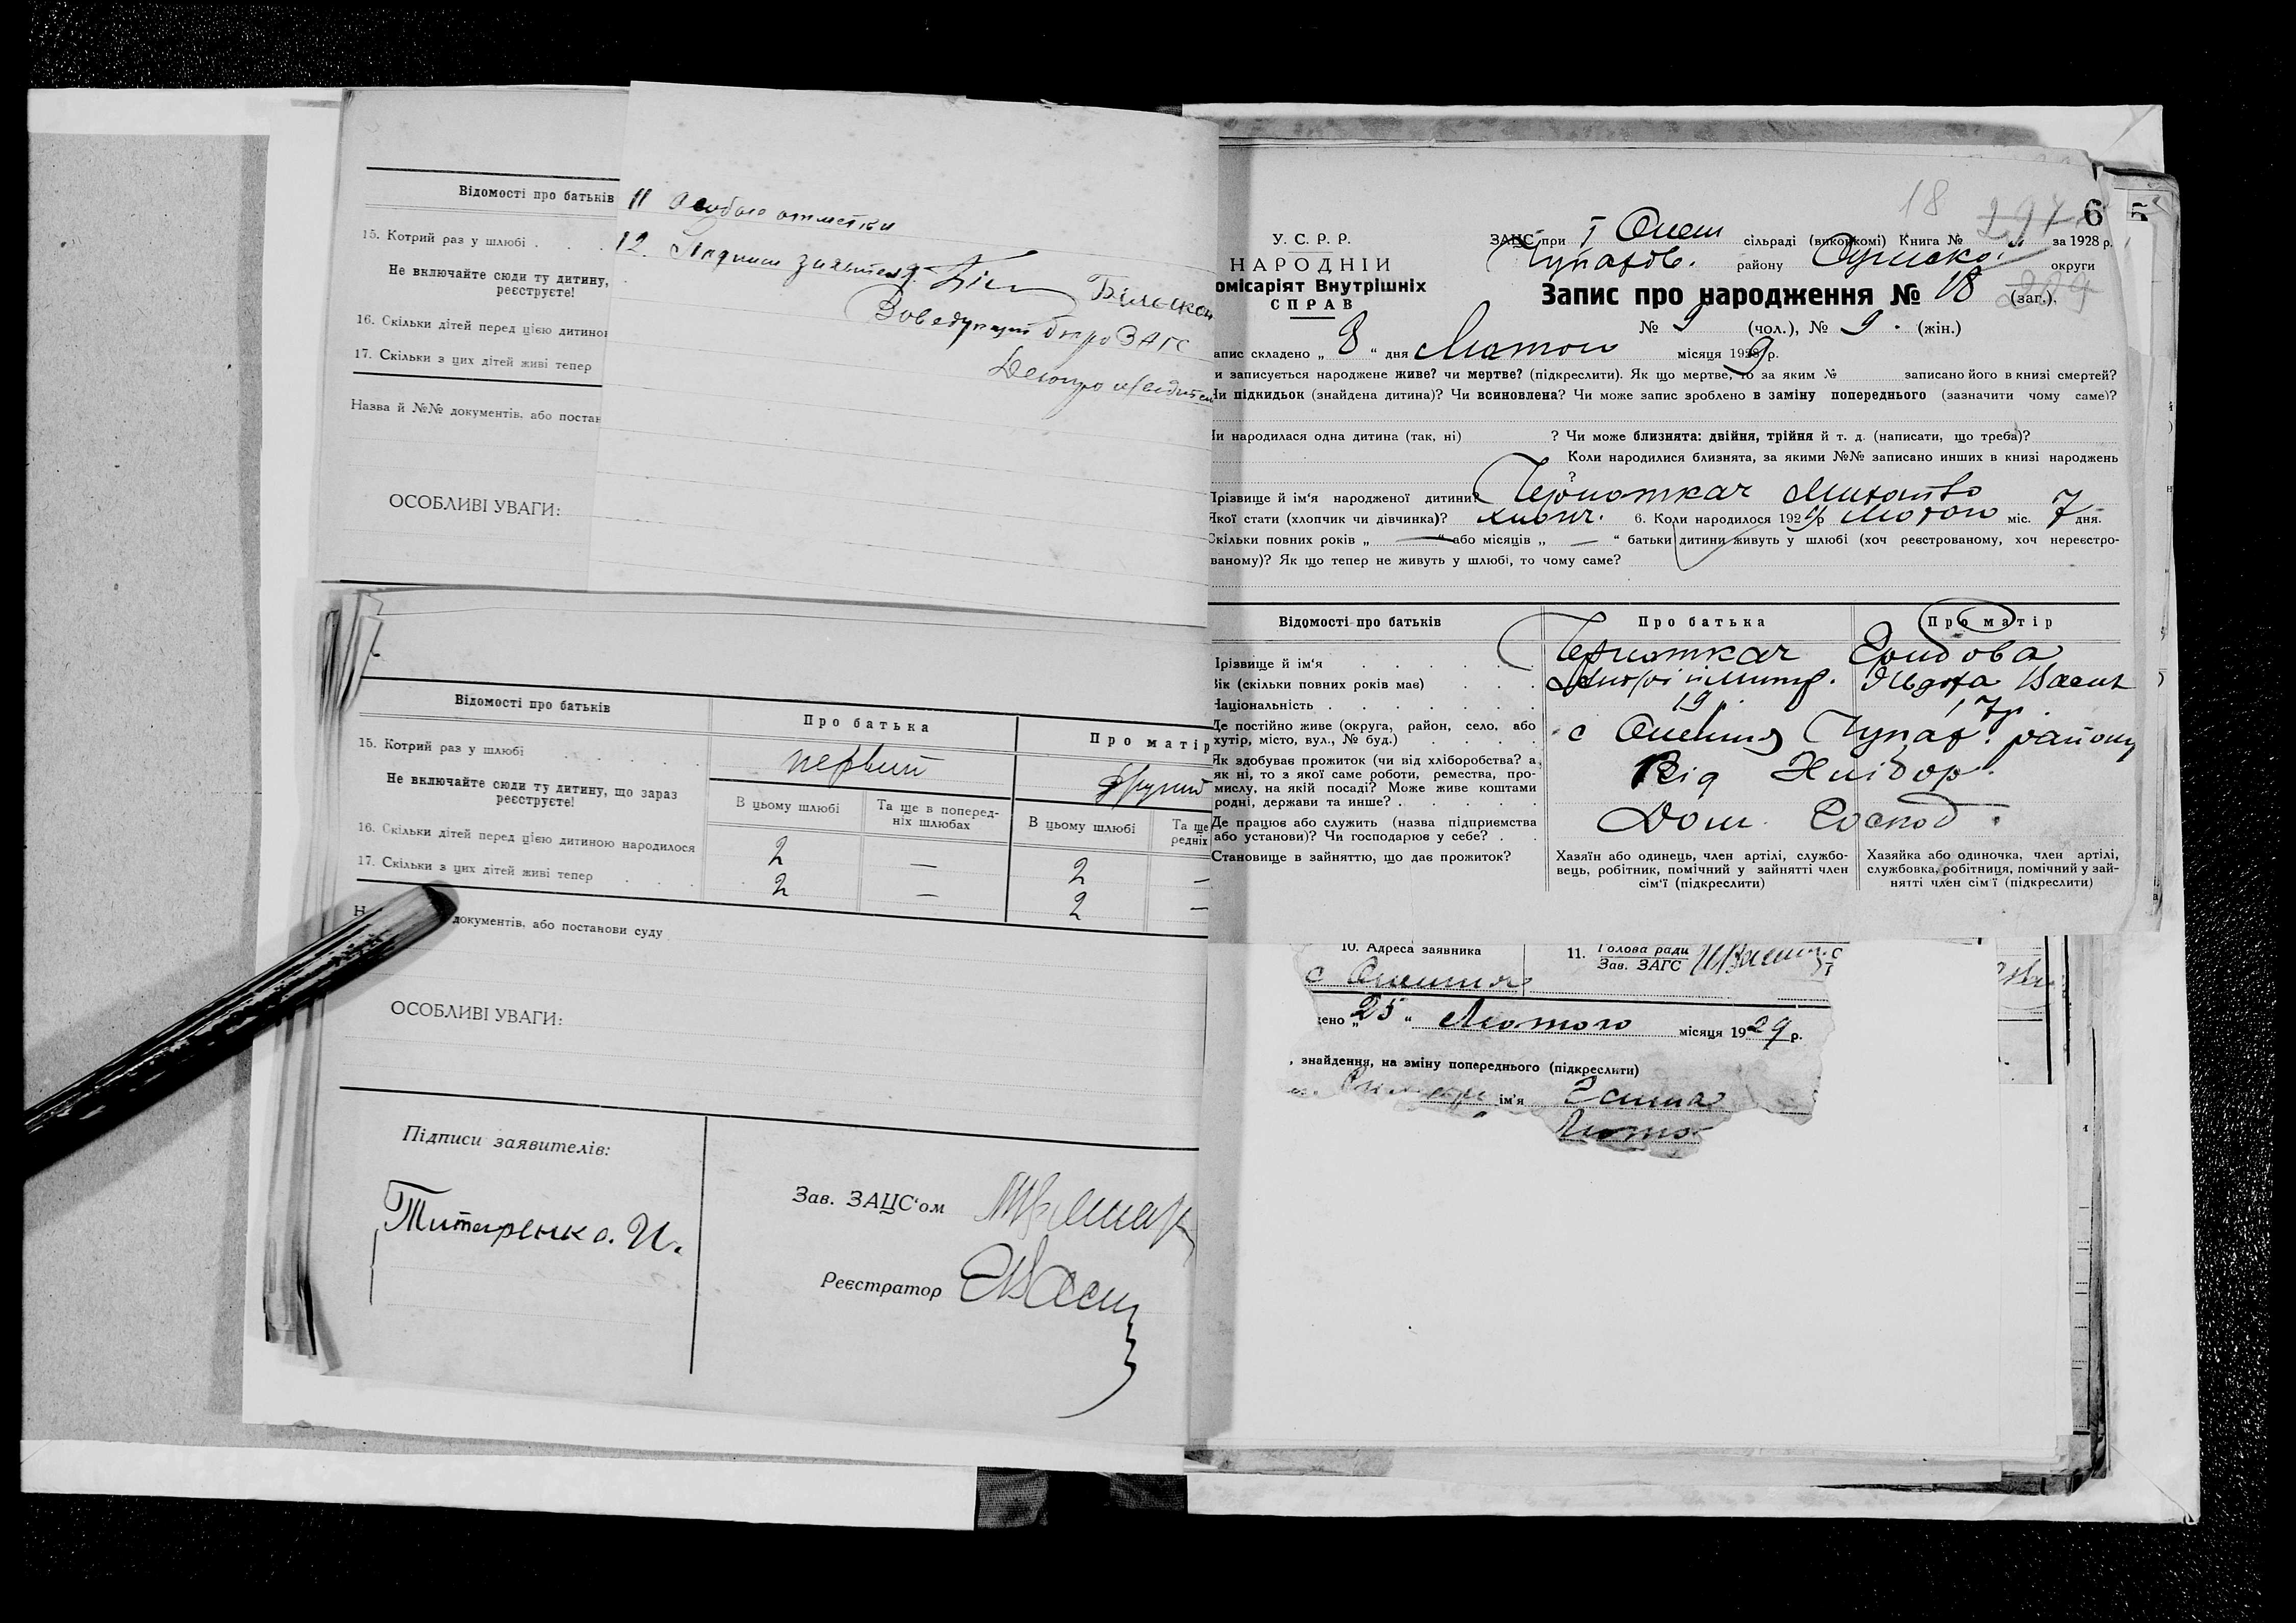 Відомості про батьків
15. Котрий раз у шлюбі . . .
Не включайте сюди ту дитину,
реєструєте!
16. Скільки дітей перед цією дитиною
17. Скільки з цих дітей живі тепер
Назва й №№ документів, або постан
ОСОБЛИВІ УВАГИ:
11 Особые отметки
12. Подписи
Заведующий бюро ЗАГС
Делопроизводитель
Відомості про батьків
Про батька
Про матір
15. Котрий раз у шлюбі . . . . .
первий
другий
Не включайте сюди ту дитину, що зараз
реєструєте!
В цьому шлюбі
Та ще в поперед-
ніх шлюбах
В цьому шлюбі
Та ще
редніх
16. Скільки дітей перед цією дитиною народилося
2 — 2 —
17. Скільки з цих дітей живі тепер . . . .
2 — 2 —
документів, або постанови суду
ОСОБЛИВІ УВАГИ:
Підписи заявителів:
Титаренко. И.
Зав. ЗАЦС'ом
Реєстратор
18
6
У. С. Р. Р.
НАРОДНІЙ
омісаріят Внутрішніх
СПРАВ
ЗАЦС при І Олеш сільраді (виконкомі) Книга № „ за 1928 р.
Чупахов. району Сумсько округи
Запис про народження № 18 (заг.),
№ 9 (чол.), № 9 . (жін.)
апис складено „ 8 “ дня Лютого місяця 1929 р.
и записується народжене живе? чи мертве? (підкреслити). Як що мертве, то за яким № записано його в книзі смертей?
Чи підкидьок (знайдена дитина)? Чи всиновлена? Чи може запис зроблено в заміну попереднього (зазначити чому саме)?
Чи народилася одна дитина (так, ні) ? Чи може близнята: двійня, трійня й т. д. (написати, що треба)?
Коли народилися близнята, за якими №№ записано инших в книзі народжень
?
Прізвище й ім'я народженої дитини? Чорноткач
Якої стати (хлопчик чи дівчинка)? хлопч. 6. Коли народилося 1929 р Лютого міс. 7 дня.
Скільки повних років „ — “ або місяців „ — “ батьки дитини живуть у шлюбі (хоч реєстрованому, хоч нереєстро-
ваному)? Як що тепер не живуть у шлюбі, то чому саме?
Відомості про батьків
Про батька
Про матір
Прізвище й ім'я . . . . . .
Чорноткач
Вік (скільки повних років має) . . .
Національність . . . . . . .
19 р. 17р.
Де постійно живе (округа, район, село, або
хутір, місто, вул., № буд.) . . . .
с Олешня Чупах. району
Як здобуває прожиток (чи від хліборобства? а
як ні, то з якої саме роботи, ремества, про-
мислу, на якій посаді? Може живе коштами
родні, держави та инше? . . . . .
Від Хлібор.
Де працює або служить (назва підприємства
або установи)? Чи господарює у себе? . .
Дом. Господ.
Становище в зайняттю, що дає прожиток?
Хазяїн або одинець, член артілі, службо-
вець, робітник, помічний у зайнятті член
сім'ї (підкреслити)
Хазяйка або одиночка, член артілі,
службовка, робітниця, помічний у зай-
нятті член сім'ї (підкреслити)
10. Адреса заявника
с Олешня
11. Голова ради
Зав. ЗАГС
ено „ 25 “ Лютого місяця 1929 р.
, знайдення, на зміну попереднього (підкреслити)
ім'я Ганна